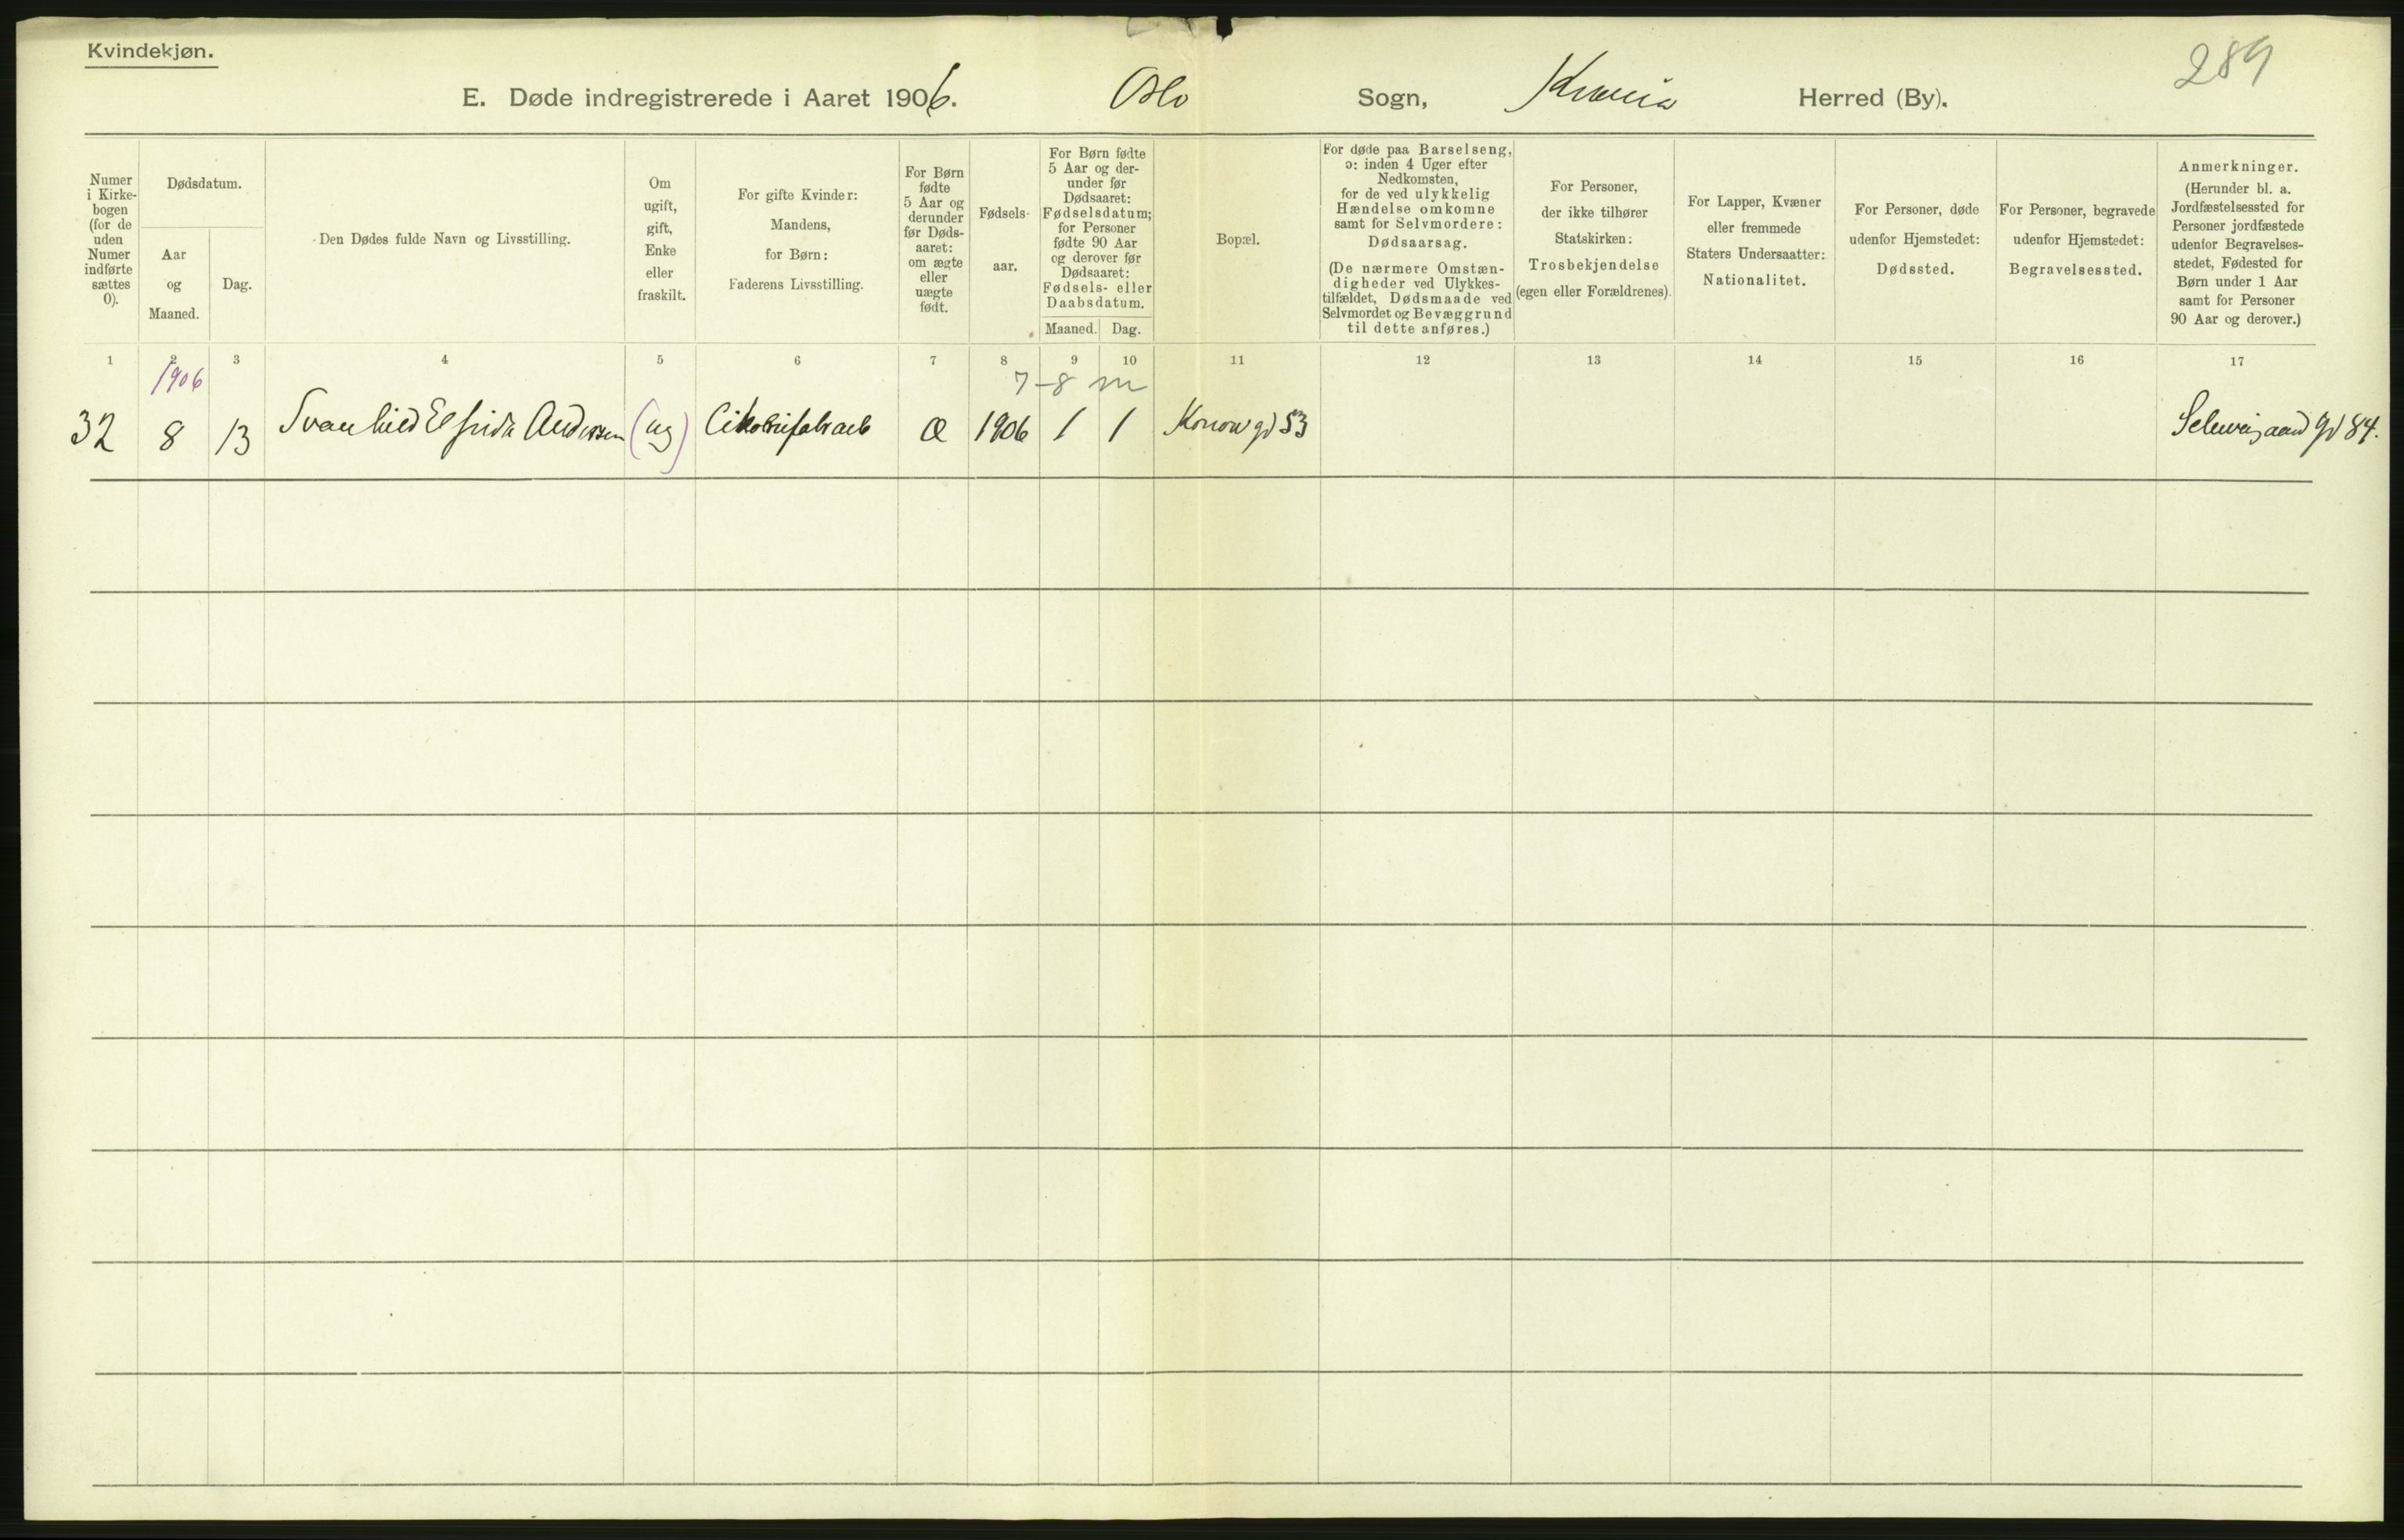 Kvindekjøn.
289
E. Døde indregistrerede i Aaret 1906. Oslo Sogn, Kr.ania Herred (By).
Numer
i Kirke-
bogen
(for de
uden
Numer
indførte
sættes
0).
Dødsdatum.
Aar
og
Maaned.
Dag.
Den Dødes fulde Navn og Livsstilling.
Om
ugift,
gift,
Enke
eller
fraskilt.
For gifte Kvinder:
Mandens,
for Børn:
Faderens Livsstilling.
For Børn
fødte
5 Aar og
derunder
før Døds-
aaret:
om ægte
eller
uægte
født.
Fødsels-
aar.
For Børn fødte
5 Aar og der-
under før
Dødsaaret:
Fødselsdatum;
for Personer
fødte 90 Aar
og derover før
Dødsaaret:
Fødsels- eller
Daabsdatum.
Maaned. Dag.
Bopæl.
For døde paa Barselseng,
ɔ: inden 4 Uger efter
Nedkomsten,
for de ved ulykkelig
Hændelse omkomne
samt for Selvmordere:
Dødsaarsag.
(De nærmere Omstæn-
digheder ved Ulykkes-
tilfældet, Dødsmaade ved
Selvmordet og Bevæggrund
til dette anføres.)
For Personer,
der ikke tilhører
Statskirken:
Trosbekjendelse
(egen eller Forældrenes).
For Lapper, Kvæner
eller fremmede
Staters Undersaatter:
Nationalitet.
For Personer, døde
udenfor Hjemstedet:
Dødssted.
For Personer, begravede
udenfor Hjemstedet:
Begravelsessted.
Anmerkninger.
(Herunder bl. a.
Jordfæstelsessted for
Personer jordfæstede
udenfor Begravelses-
stedet, Fødested for
Børn under 1 Aar
samt for Personer
90 Aar og derover.)
1 2 3 4 5 6 7 8 9 10 11 12 13 14 15 16 17
1906 7-8 m
32 8 13 Svanhild Elfrida Andersen (ug) Cikoriefabrarb Æ 1906 1 1 Konowgd 53 Schweigaardgd 84.